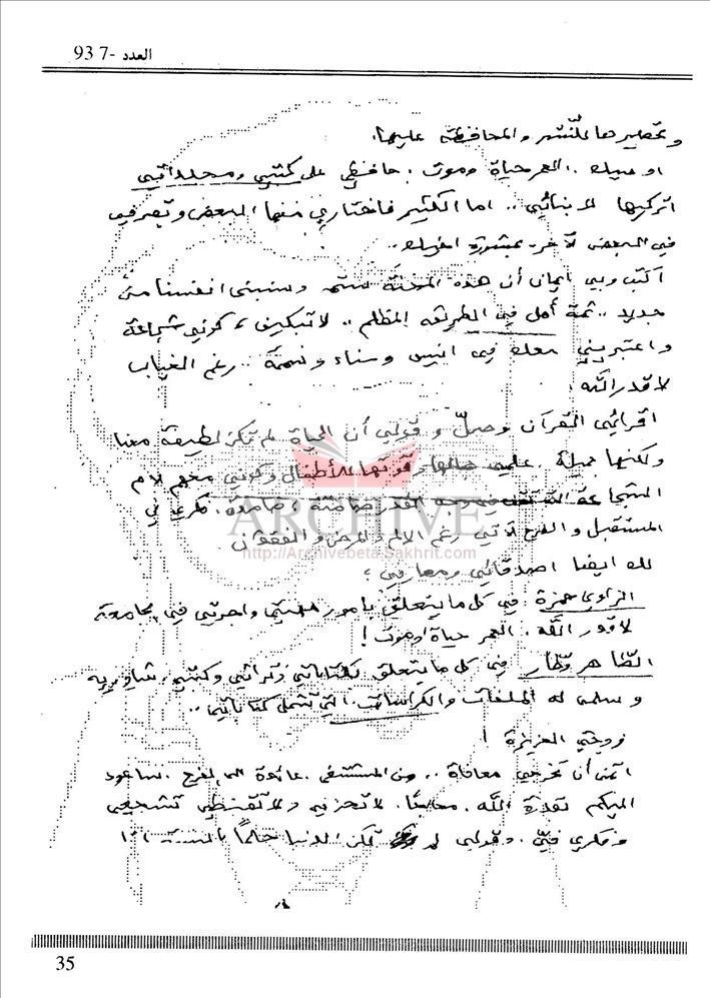 العدد -7 93
وتحضيرها للنشر والمحافظة عليها.
اوصيك .. العمر حياة وموت . حافظي على كتبي ومجلداتي
اتركيها لابنائي .. اما الكثير فاختاري منها البعض وتصرفي
في البعض لآخر بمشورة اخوتك ..
اكتب وبي ايمان أن هذه المحنة ستمر وسنبني انفسنا من
جديد .. ثمة أمل في الطريق المظلم .. لا تبكين ، كوني شجاعة
واعتبريني معك في انيس وسناء ونسمة .. رغم الغياب
لا قدر الله .
اقرائي القرآن وصلّ وقولي أن الحياة لم تكن لطيفة معنا
ولكنها جميلة . علمي جمالها وقوتها للأطفال وكوني معهم لام
الشجاعة التي تقف في وجه القدر صامتة ، صامدة . فكري في
المستقبل والفرح لآتي رغم الالم والمرض والفقدان
لك ايضا اصدقائي ومعارفي :
الزاوي حمزة : في كل ما يتعلق بأمور مهنتي واجرتي في الجامعة
لا قدر الله . العمر حياة وموت !
الطاهر وطار في كل ما يتعلق بكتاباتي وتراثي وكتبي . شاوريه
وسلمي له الملفات والكراسات التي تشمل كتاباتي ..
زوجتي العزيزة !
اتمنى أن تخرجي معافاة .. من المستشفى . عائدة الى الفرح . سأعود
اليكم بقدرة الله . معافيًا . لا تحزني ولا تقنطي تشجعي
وفكري فيّ . وقولي لم تكن الدنيا حلمًا بالنسبة
ARCHIVE
http://Archivebeta.Sakhrit.com
35